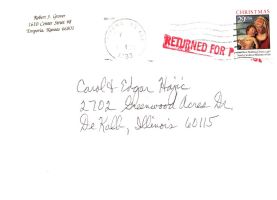 Robert J. Grover
1610 Center Street #8
Emporia, Kansas 66801
CHRISTMAS
29 USA
RETURNED FOR
Carol & Edgar Hajic
2702 Greenwood Acres Dr.
De Kalb, Illinois 60115